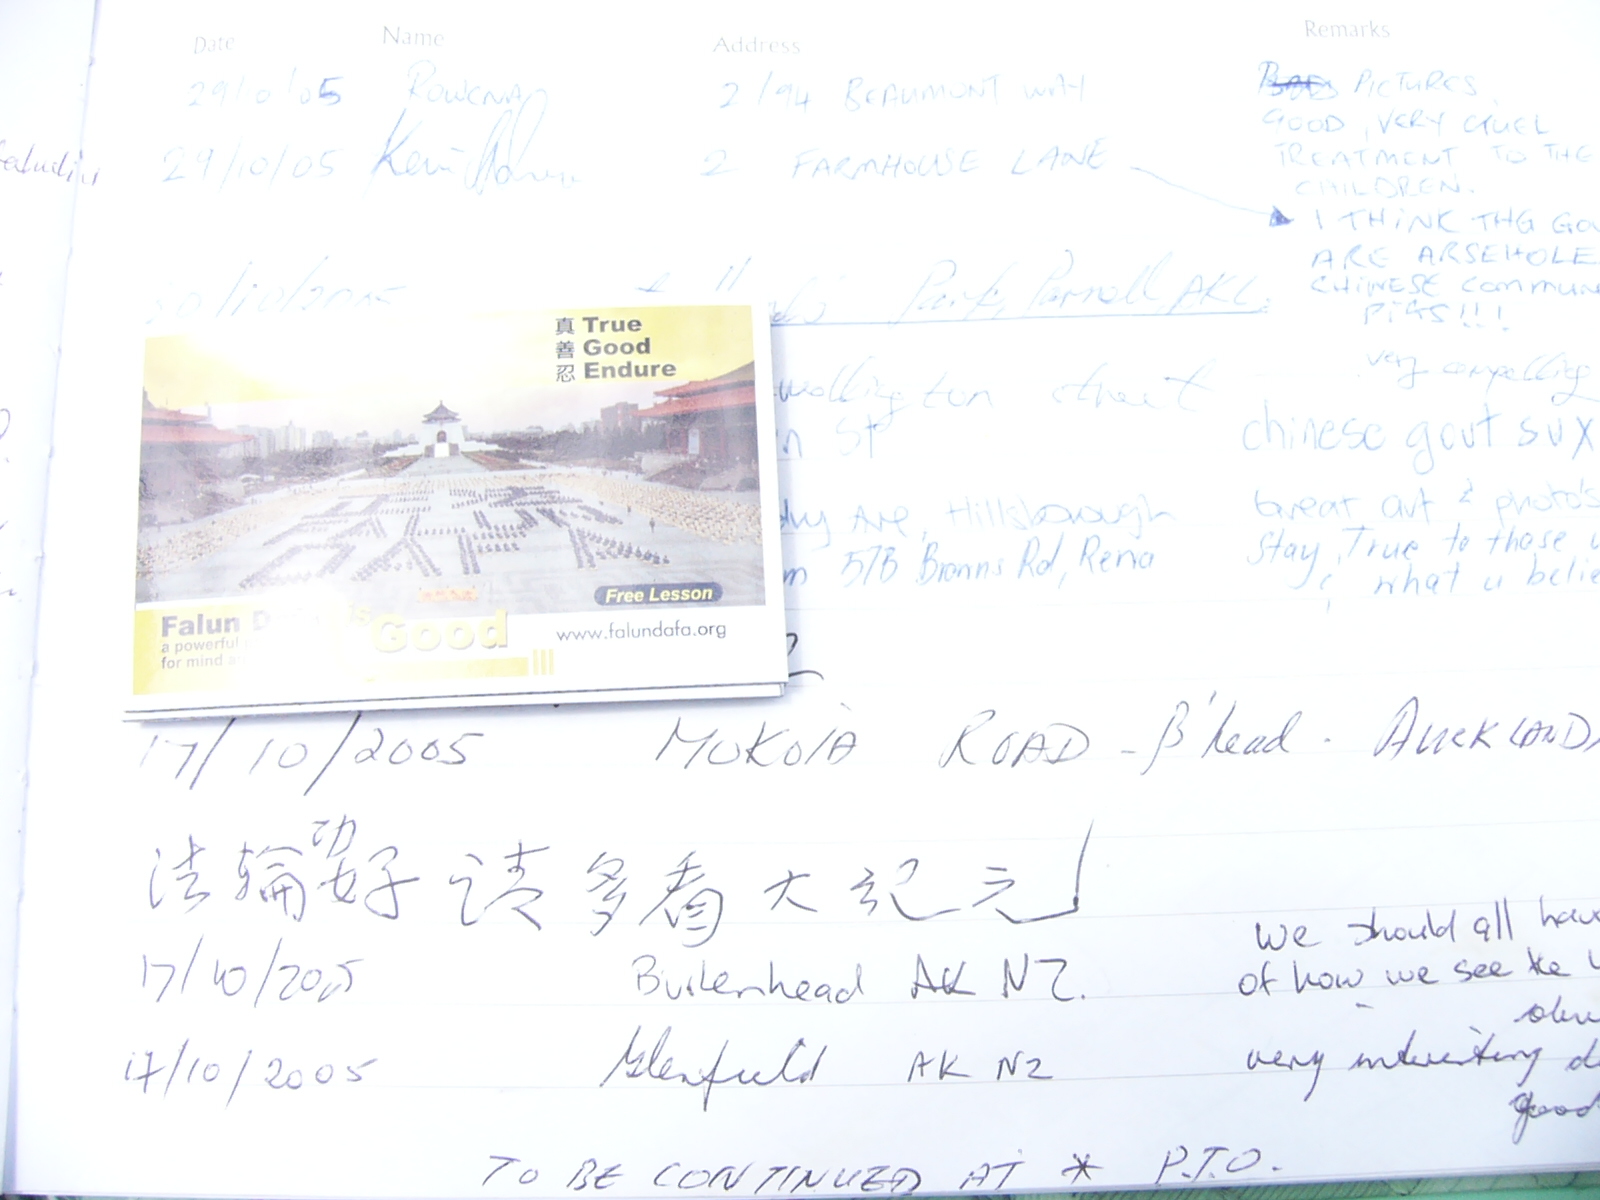 Date Name Address Remarks
29/10/05 ROWENA 2/94 BEAUMONT WAY PICTURES
GOOD, VERY CRUEL
TREATMENT TO THE
CHILDREN.
29/10/05 2 FARMHOUSE LANE
I THINK THE GOV
ARE ARSEHOLE
CHINESE COMMUN
PIGS!!!
30/10/2005 Park, Parnell AKL.
very compelling
wellington street
n ST chinese govt sux
Ave, Hillsborough Great art & photo's
stay True to those
57B Browns Rd,
& what u belie
真 True
善 Good
忍 Endure
Free Lesson
Falun D is Good www.falundafa.org
a powerful
for mind a
17/10/2005 MOKOIA ROAD - B'head. AUCKLAND
法輪功好 请多看大纪元
we should all have
17/10/2005 Birkenhead AK NZ. of how we see the
17/10/2005 Glenfield AK NZ very interesting
good
TO BE CONTINUED AT * P.T.O.